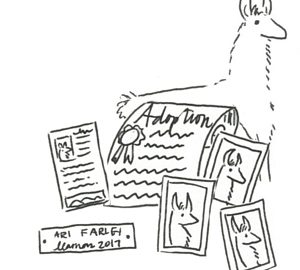 Adoption
ARI FARLEY
llamon 2017